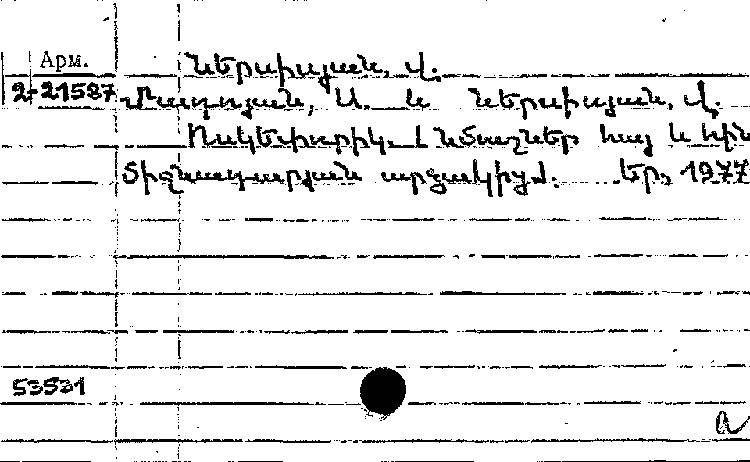 Арм. Ներսիսյան, Վ.
2-21587 Մադոյան, Ա. և Ներսիսյան, Վ.
Ոսկեփորիկ. [Նմուշներ հայ և հին
միջնադարյան արձակից]. Եր., 1977
53531
a